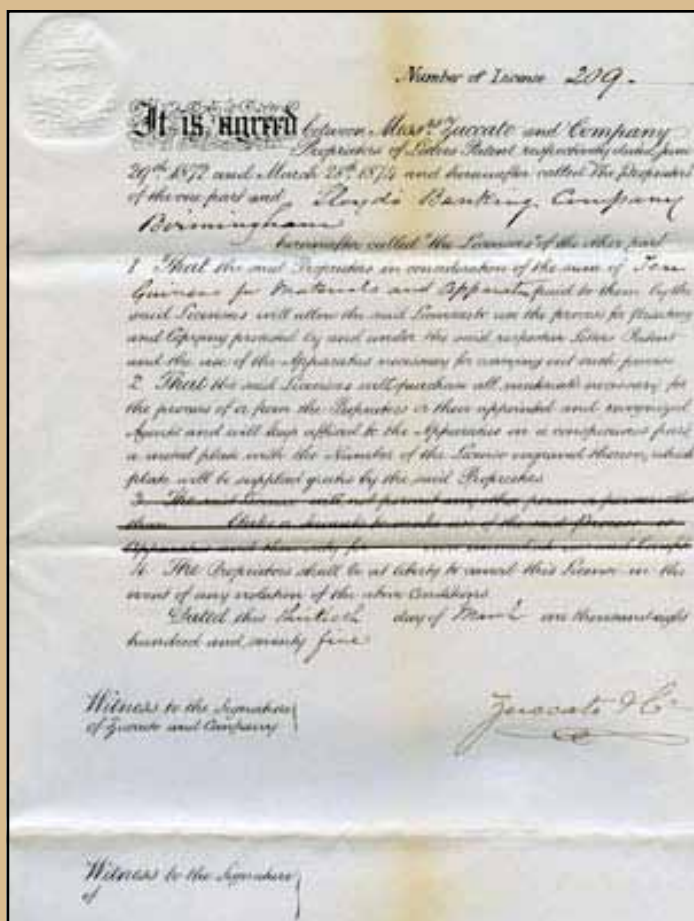 Number of License 209.
It is agreed between Mess.rs Zuccato and Company
Proprietors of Letters Patent respectively dated June
29th 1872 and March 28th 1874 and hereinafter called The Proprietors
of the one part and Lloyds Banking Company
Birmingham
hereinafter called "the Licensees" of the other part
1 That the said Proprietors in consideration of the sum of Ten
Guineas for Materials and Apparatus paid to them by the
said Licensees will allow the said Licensees to use the process for
and Copying protected by and under the said respective Letters Patent
and the use of the Apparatus necessary for carrying out such process
2. That the said Licensees will purchase all materials necessary for
the process of or from the Proprietors or their appointed and recognized
Agents and will keep affixed to the Apparatus in a conspicuous part
a metal plate with the Number of the License engraved thereon, which
plate will be supplied gratis by the said Proprietors
3. The said will not permit any other person
to make use of the said Process or
Apparatus and
4 The Proprietors shall be at liberty to cancel this License in the
event of any violation of the above Conditions
Dated this day of March one thousand eight
hundred and seventy five
Witness to the Signature
of Zuccato and Company
Zuccato & Co
Witness to the Signature
of